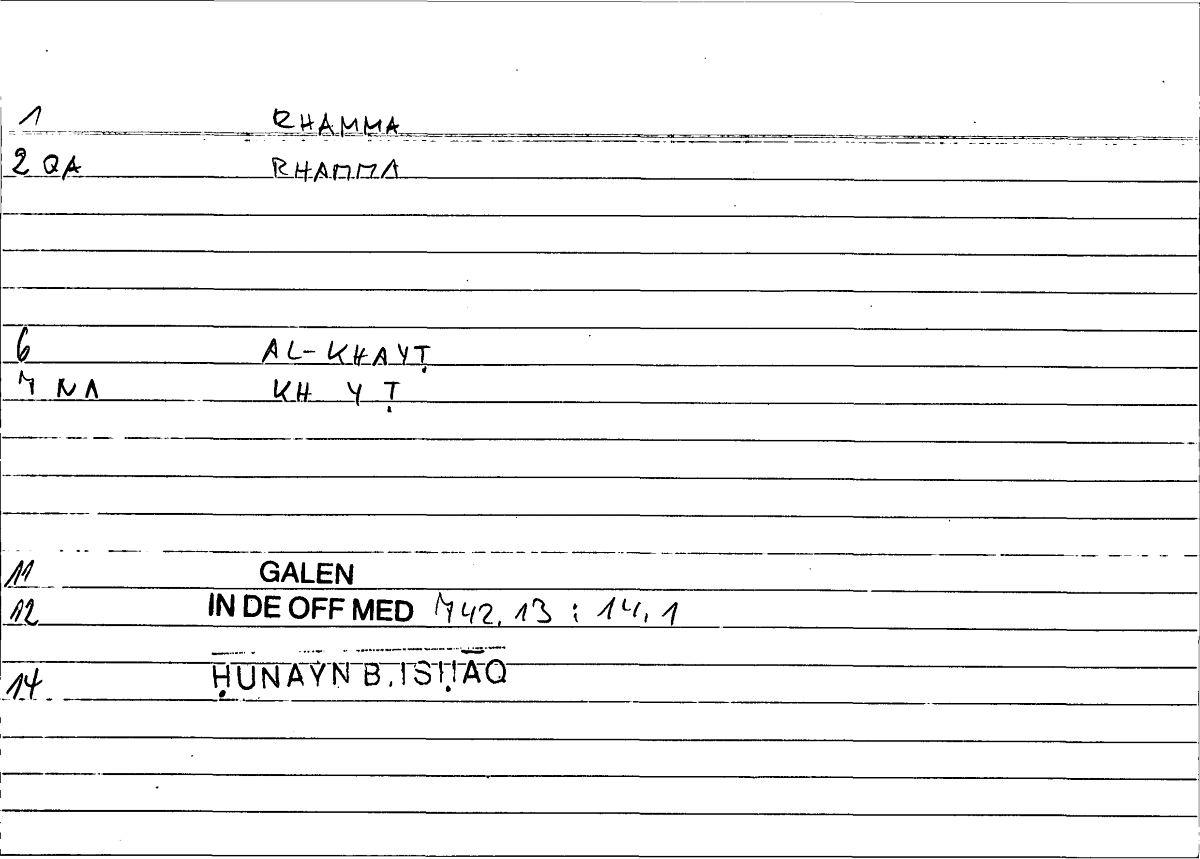 1 RHAMMA
2 QA RHAMMA
6 AL-KHAYṬ
7 NA KH Y Ṭ
11 GALEN
12 IN DE OFF MED 742,13 : 14,1
14 ḤUNAYN B. ISḤĀQ